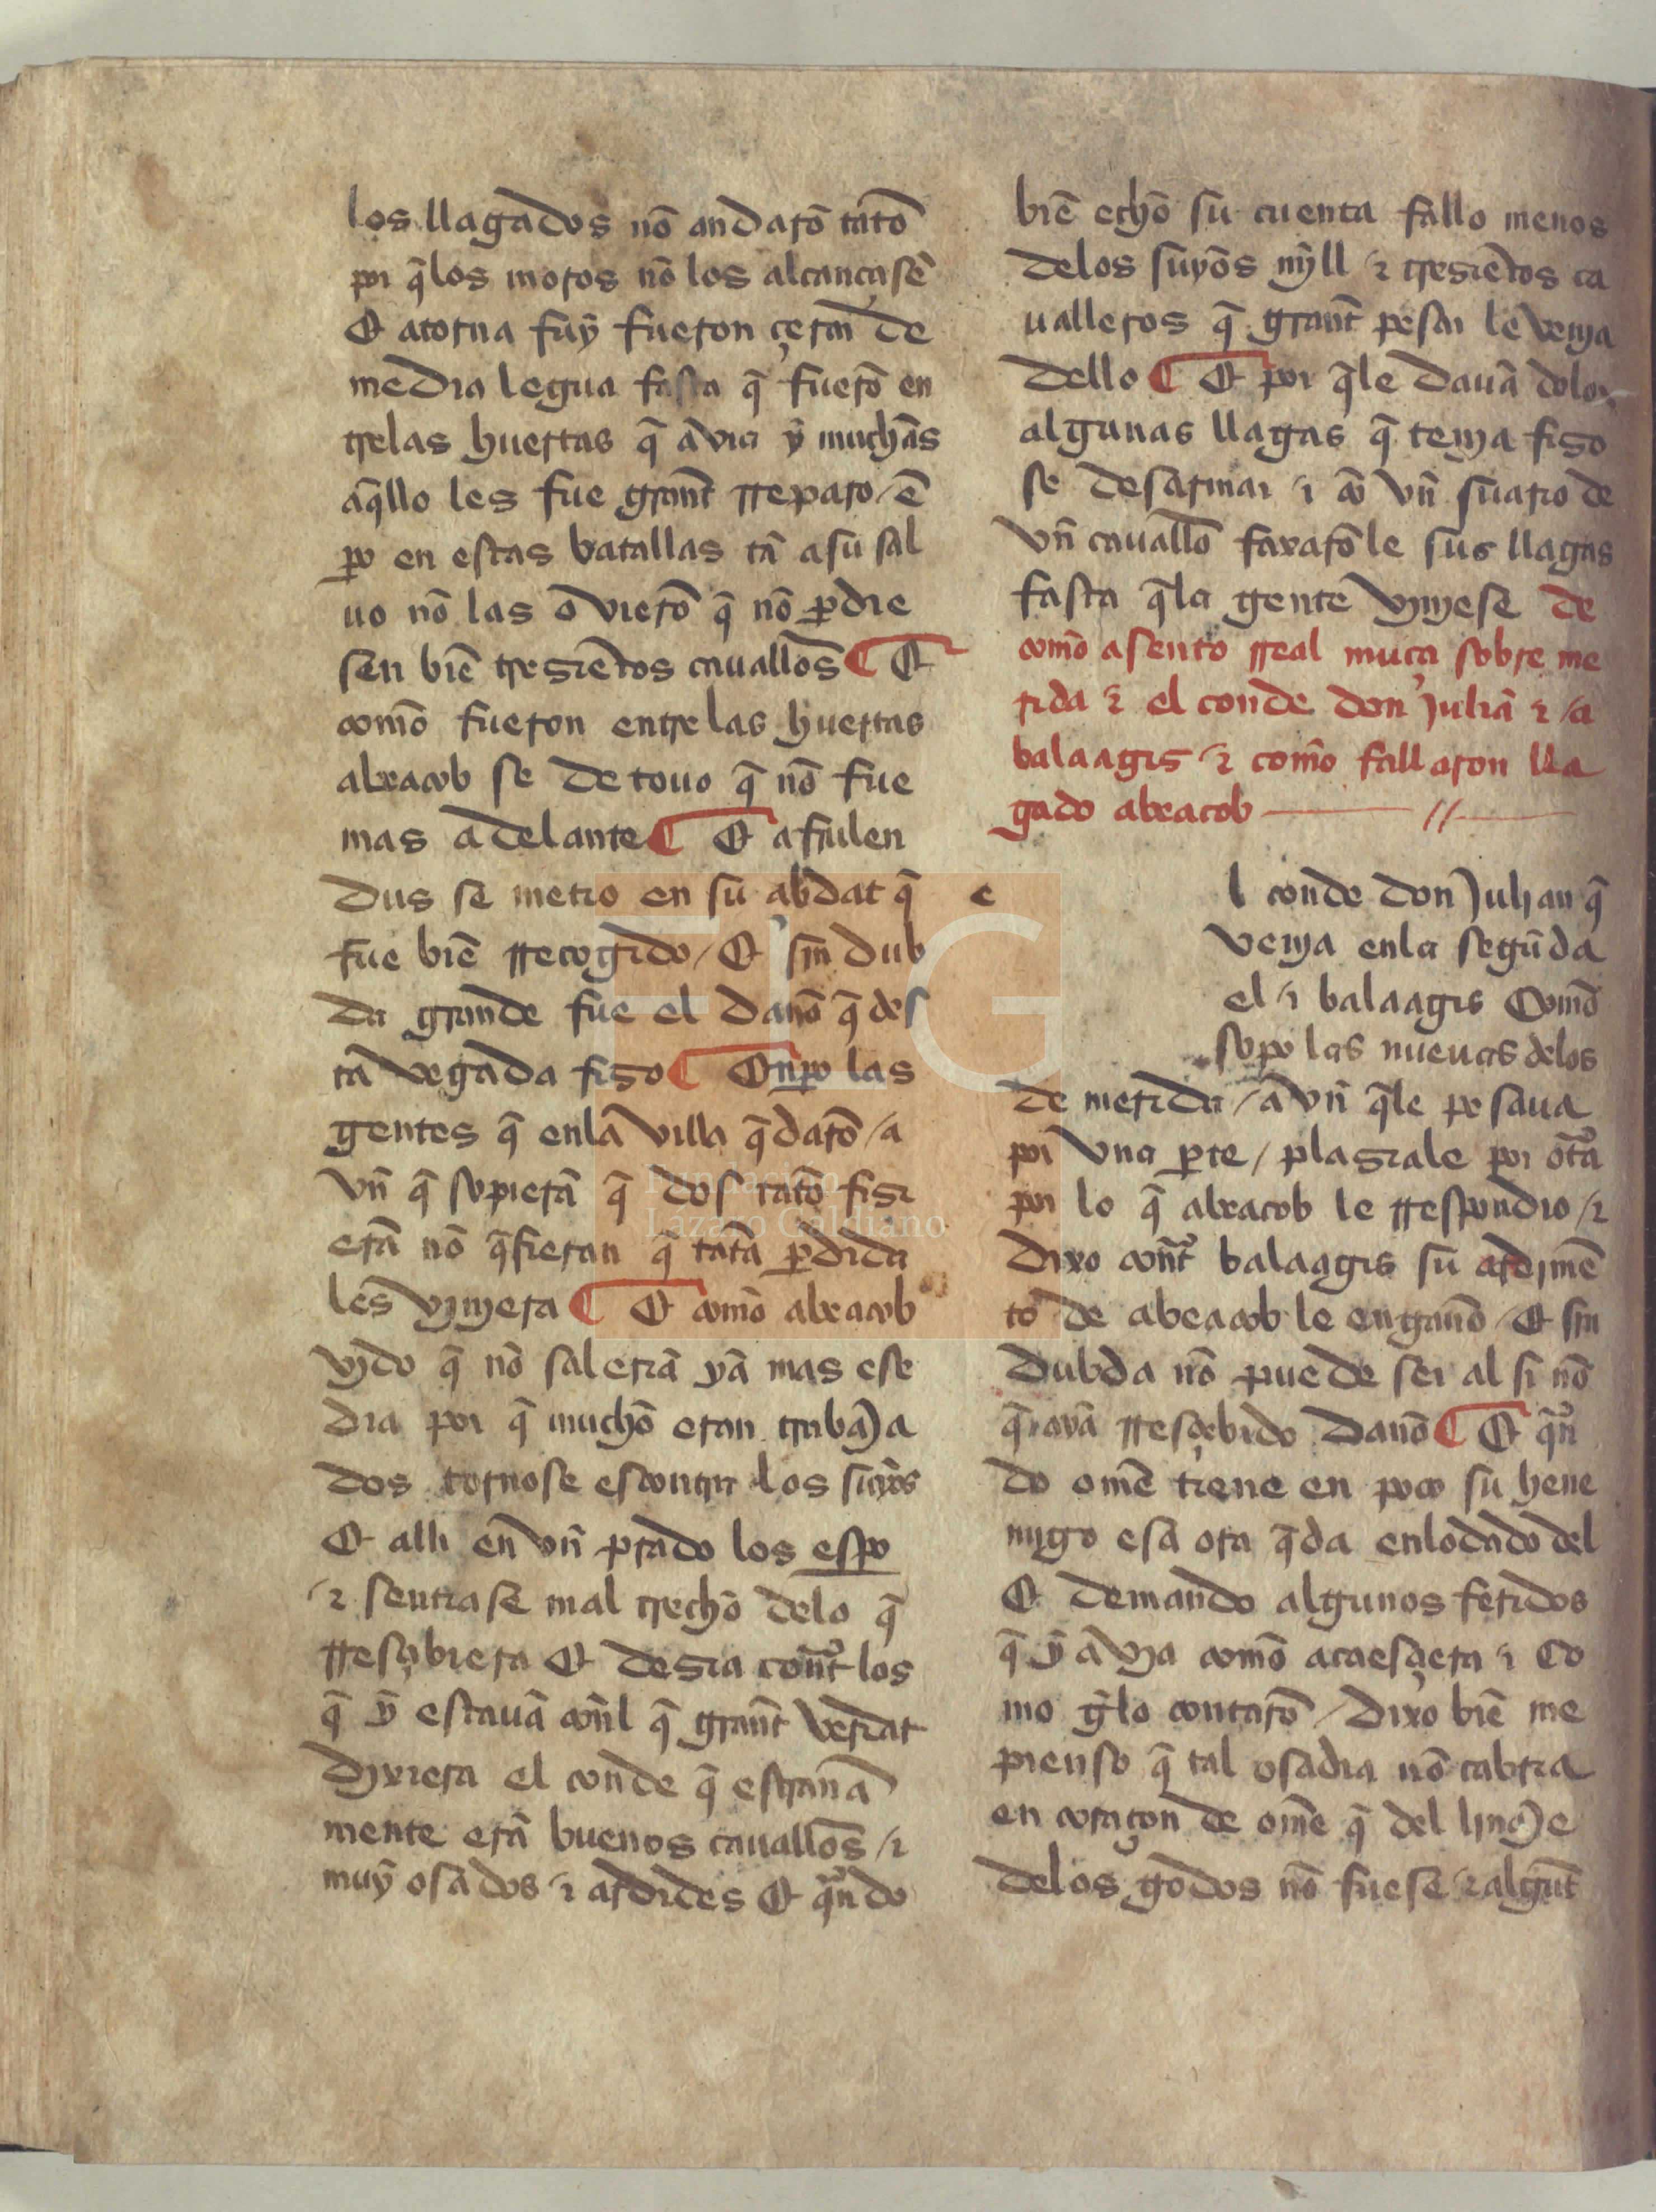 los llagados nō andarō tātō
por q̄ los moros nō los alcancasē
Et atorna fuȳ fueron çerca de
media legua fasta q̄ fuerō en
trelas huertas q̄ avia ȳ muchās
aq̄llo les fue grant rreparo / ē
ꝑo en estas batallas tā a su sal
uo nō las ovierō q̄ nō ꝑdie
sen biē tresiētos cauallos̄ ¶ Et
comō fueron entre las huertas
abracob se detouo q̄ nō fue
mas adelante ¶ Et afrulen
dus se metio en su abdat q̄
fue biē rrecogido / Et sin dub
da grande fue el danō q̄ des
tā vegada fiso ¶ Enꝑo las
gentes q̄ enla villa q̄darō / a
vn̄ q̄ sopierā q̄ dos tātō fisi
erā nō q̄sieran q̄ tātā ꝑdida
les vinjera ¶ Et comō abracob
vido q̄ nō saleriā yā mas ese
dia por q̄ muchō eran trabaja
dos tornose escontra los suyos
Et alli en vn̄ prado los esꝑo
⁊ sentiase mal trechō delo q̄
rresçibiera Et desia cont̄ los
q̄ ȳ estauā con̄l q̄ grant̄ verdat
dixiera el conde q̄ estranā
mente erā buenos cauallos̄ / ⁊
muȳ osados ⁊ ardides Et qn̄do
biē echō su cuenta fallo menos
delos suyos mjll ⁊ tresiētos ca
ualleros q̄ grant̄ pesar le venja
dello ¶ Et por q̄le dauā dolor
algunas llagas q̄ tenja fiso
se desarmar ⁊ cō vn̄ suario de
vn̄ cauallō faxarōle sus llagas
fasta q̄la gente vinjese de
comō asento rreal muça sobre me
rida ⁊ el conde don juliā ⁊ a
balaagis ⁊ comō fallaron lla
gado abracob //
e
l conde don Julian q̄
venja enla segūda
el ⁊ balaagis Comō
sopo las nueuas delos
de merida / a vn̄ q̄le pesaua
por vna ꝑte / plasiale por ot̄a
por lo q̄ abracob le rrespondio / ⁊
dixo cont̄ balaagis su ardimē
to de abracob le enganō / Et sin
dubda nō puede ser al si nō
q̄ ayā rresçebido danō ¶ Et qn̄
do omē tiene en poco su hene
migo esa ora q̄da enlodado del
Et demando algunos feridos
q̄ ȳ avia comō acaesçiera ⁊ co
mo gelo contarō / dixo biē me
pienso q̄ tal osadia nō cabria
en coraçon de omē q̄ del linaje
delos godos nō fuese ⁊ algunt̄
FLG
Fundación
Lázaro Galdiano